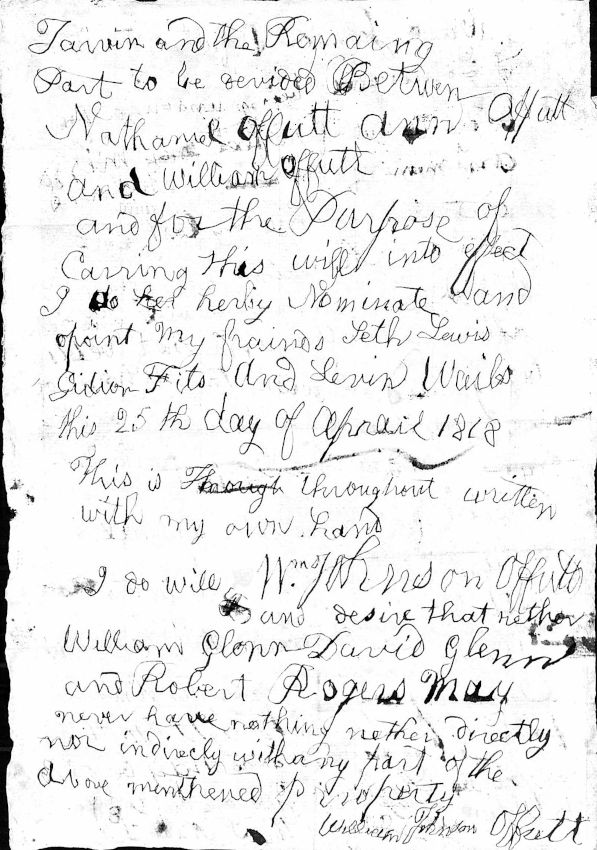 Tarvin and the Remaing
Part to be devided Betwen
Nathaniel Offutt Ann Offutt
and William Offutt
and for the Purpose of
Carring this will into effect
I do herby Nominate and
opoint my frainds Seth Lewis
Gidion Fits and Levin Wails
this 25th day of Aprail 1818
This is Though throughout written
with my own hand
I do will Wm Johnson Offutt
and desire that nether
William Glenn David Glenn
and Robert Rogers May
never have nothing nether directly
nor indirecly with any part of the
above menthened Property
William Johnson Offutt